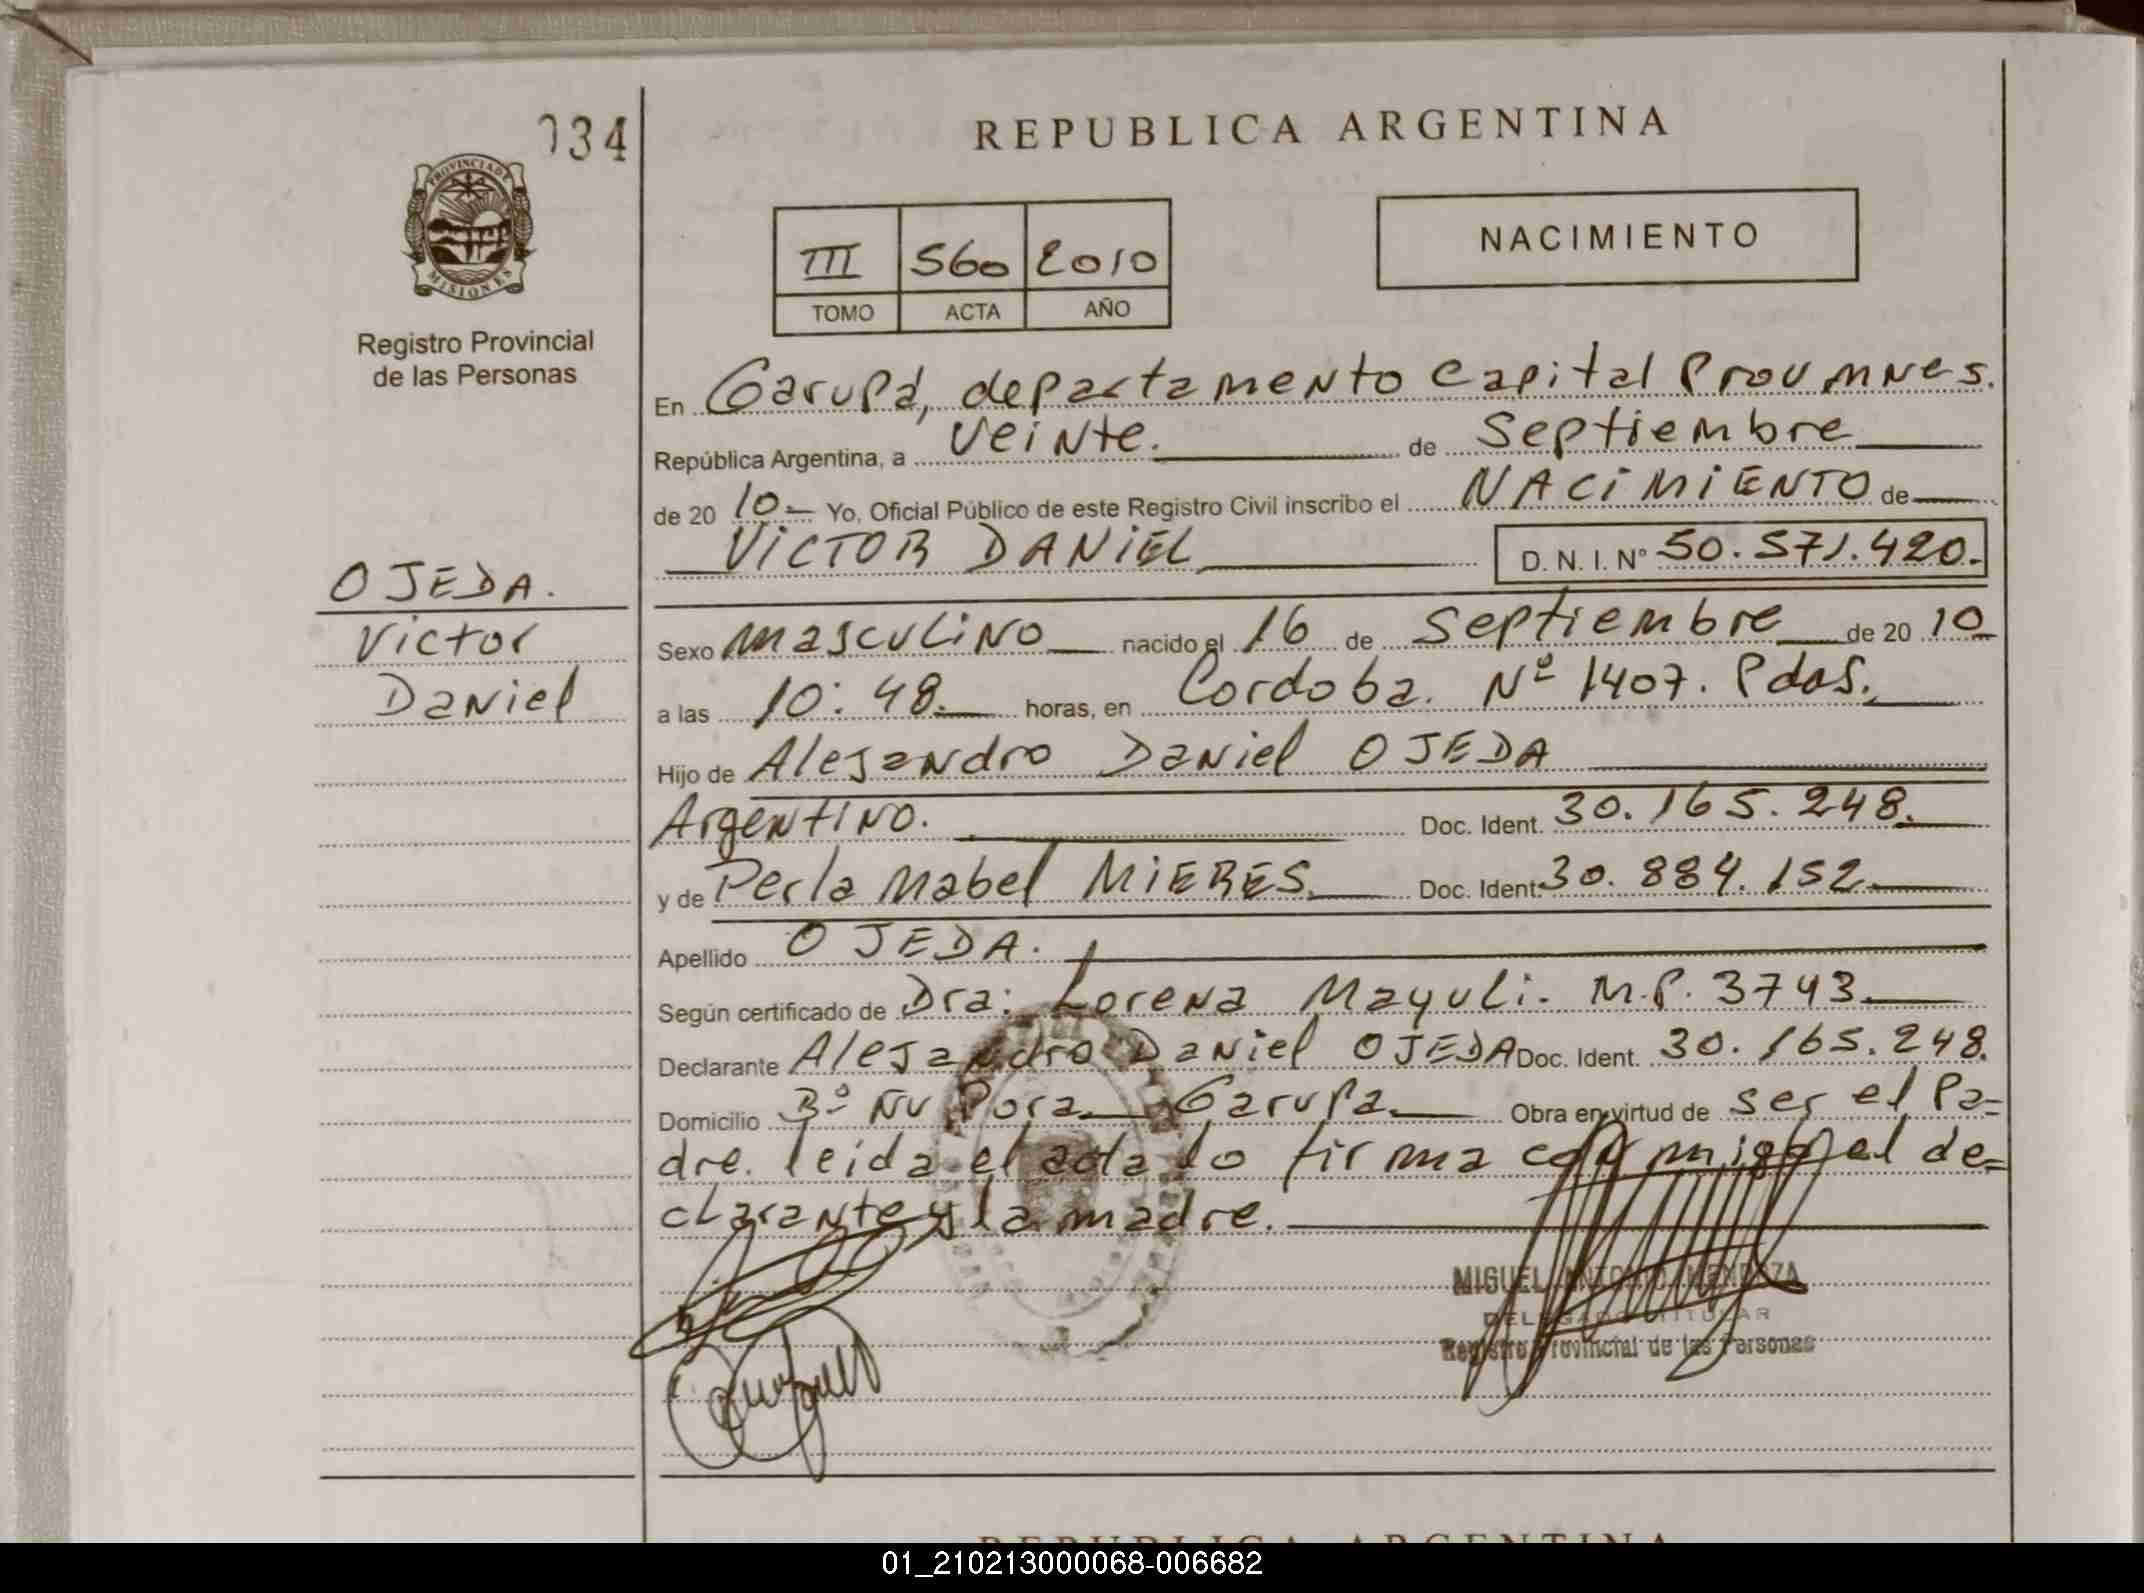 034
PROVINCIA DE
MISIONES
Registro Provincial
de las Personas
OJEDA.
Victor
Daniel
REPUBLICA ARGENTINA
III 560 2010
TOMO ACTA AÑO
NACIMIENTO
En Garupá, departamento Capital Prov mnes.
República Argentina, a veinte. de Septiembre
de 20 10- Yo, Oficial Público de este Registro Civil inscribo el NACIMIENTO de
VICTOR DANIEL D. N. I. Nº 50.571.420.-
Sexo masculino nacido el 16 de Septiembre de 20 10
a las 10:48. horas, en Cordoba. Nº 1407. Pdas.
Hijo de Alejandro Daniel OJEDA
Argentino. Doc. Ident. 30.165.248.
y de Perla Mabel MIERES. Doc. Ident. 30.884.152.
Apellido OJEDA.
Según certificado de Dra: Lorena Mayuli. M.P. 3743.
Declarante Alejandro Daniel OJEDA Doc. Ident. 30.165.248.
Domicilio Bº Ñu Pora Garupa. Obra en virtud de ser el Pa=
dre. leida el acta lo firma conmigo el de=
clarante y la madre.
MIGUEL ANTONIO MENDOZA
DELEGADO TITULAR
Registro Provincial de las Personas
REPUBLICA ARGENTINA
01_210213000068-006682